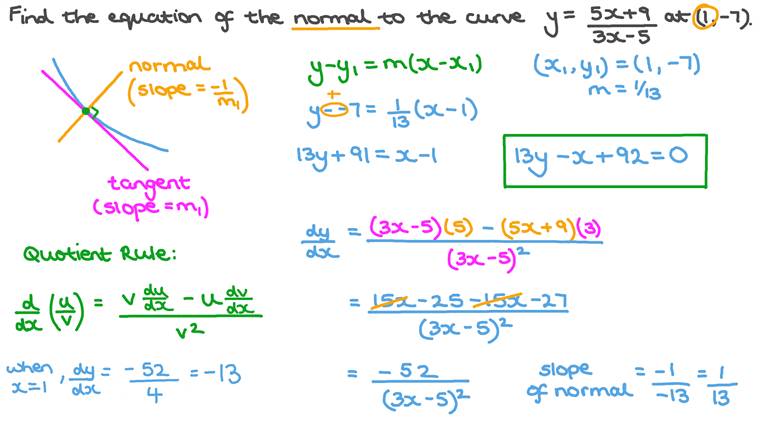 Find the equation of the normal to the curve y = (5x+9)/(3x-5) at (1,-7).
normal
(slope = -1/m₁)
tangent
(slope = m₁)
y-y₁ = m(x-x₁)
(x₁, y₁) = (1, -7)
m = 1/13
+
y--7 = 1/13 (x-1)
13y+91 = x-1
13y-x+92 = 0
Quotient Rule:
d/dx (u/v) = (v du/dx - u dv/dx)/v²
when x=1, dy/dx = -52/4 = -13
dy/dx = ((3x-5)(5) - (5x+9)(3))/(3x-5)²
= (15x-25-15x-27)/(3x-5)²
= -52/(3x-5)²
slope of normal = -1/-13 = 1/13